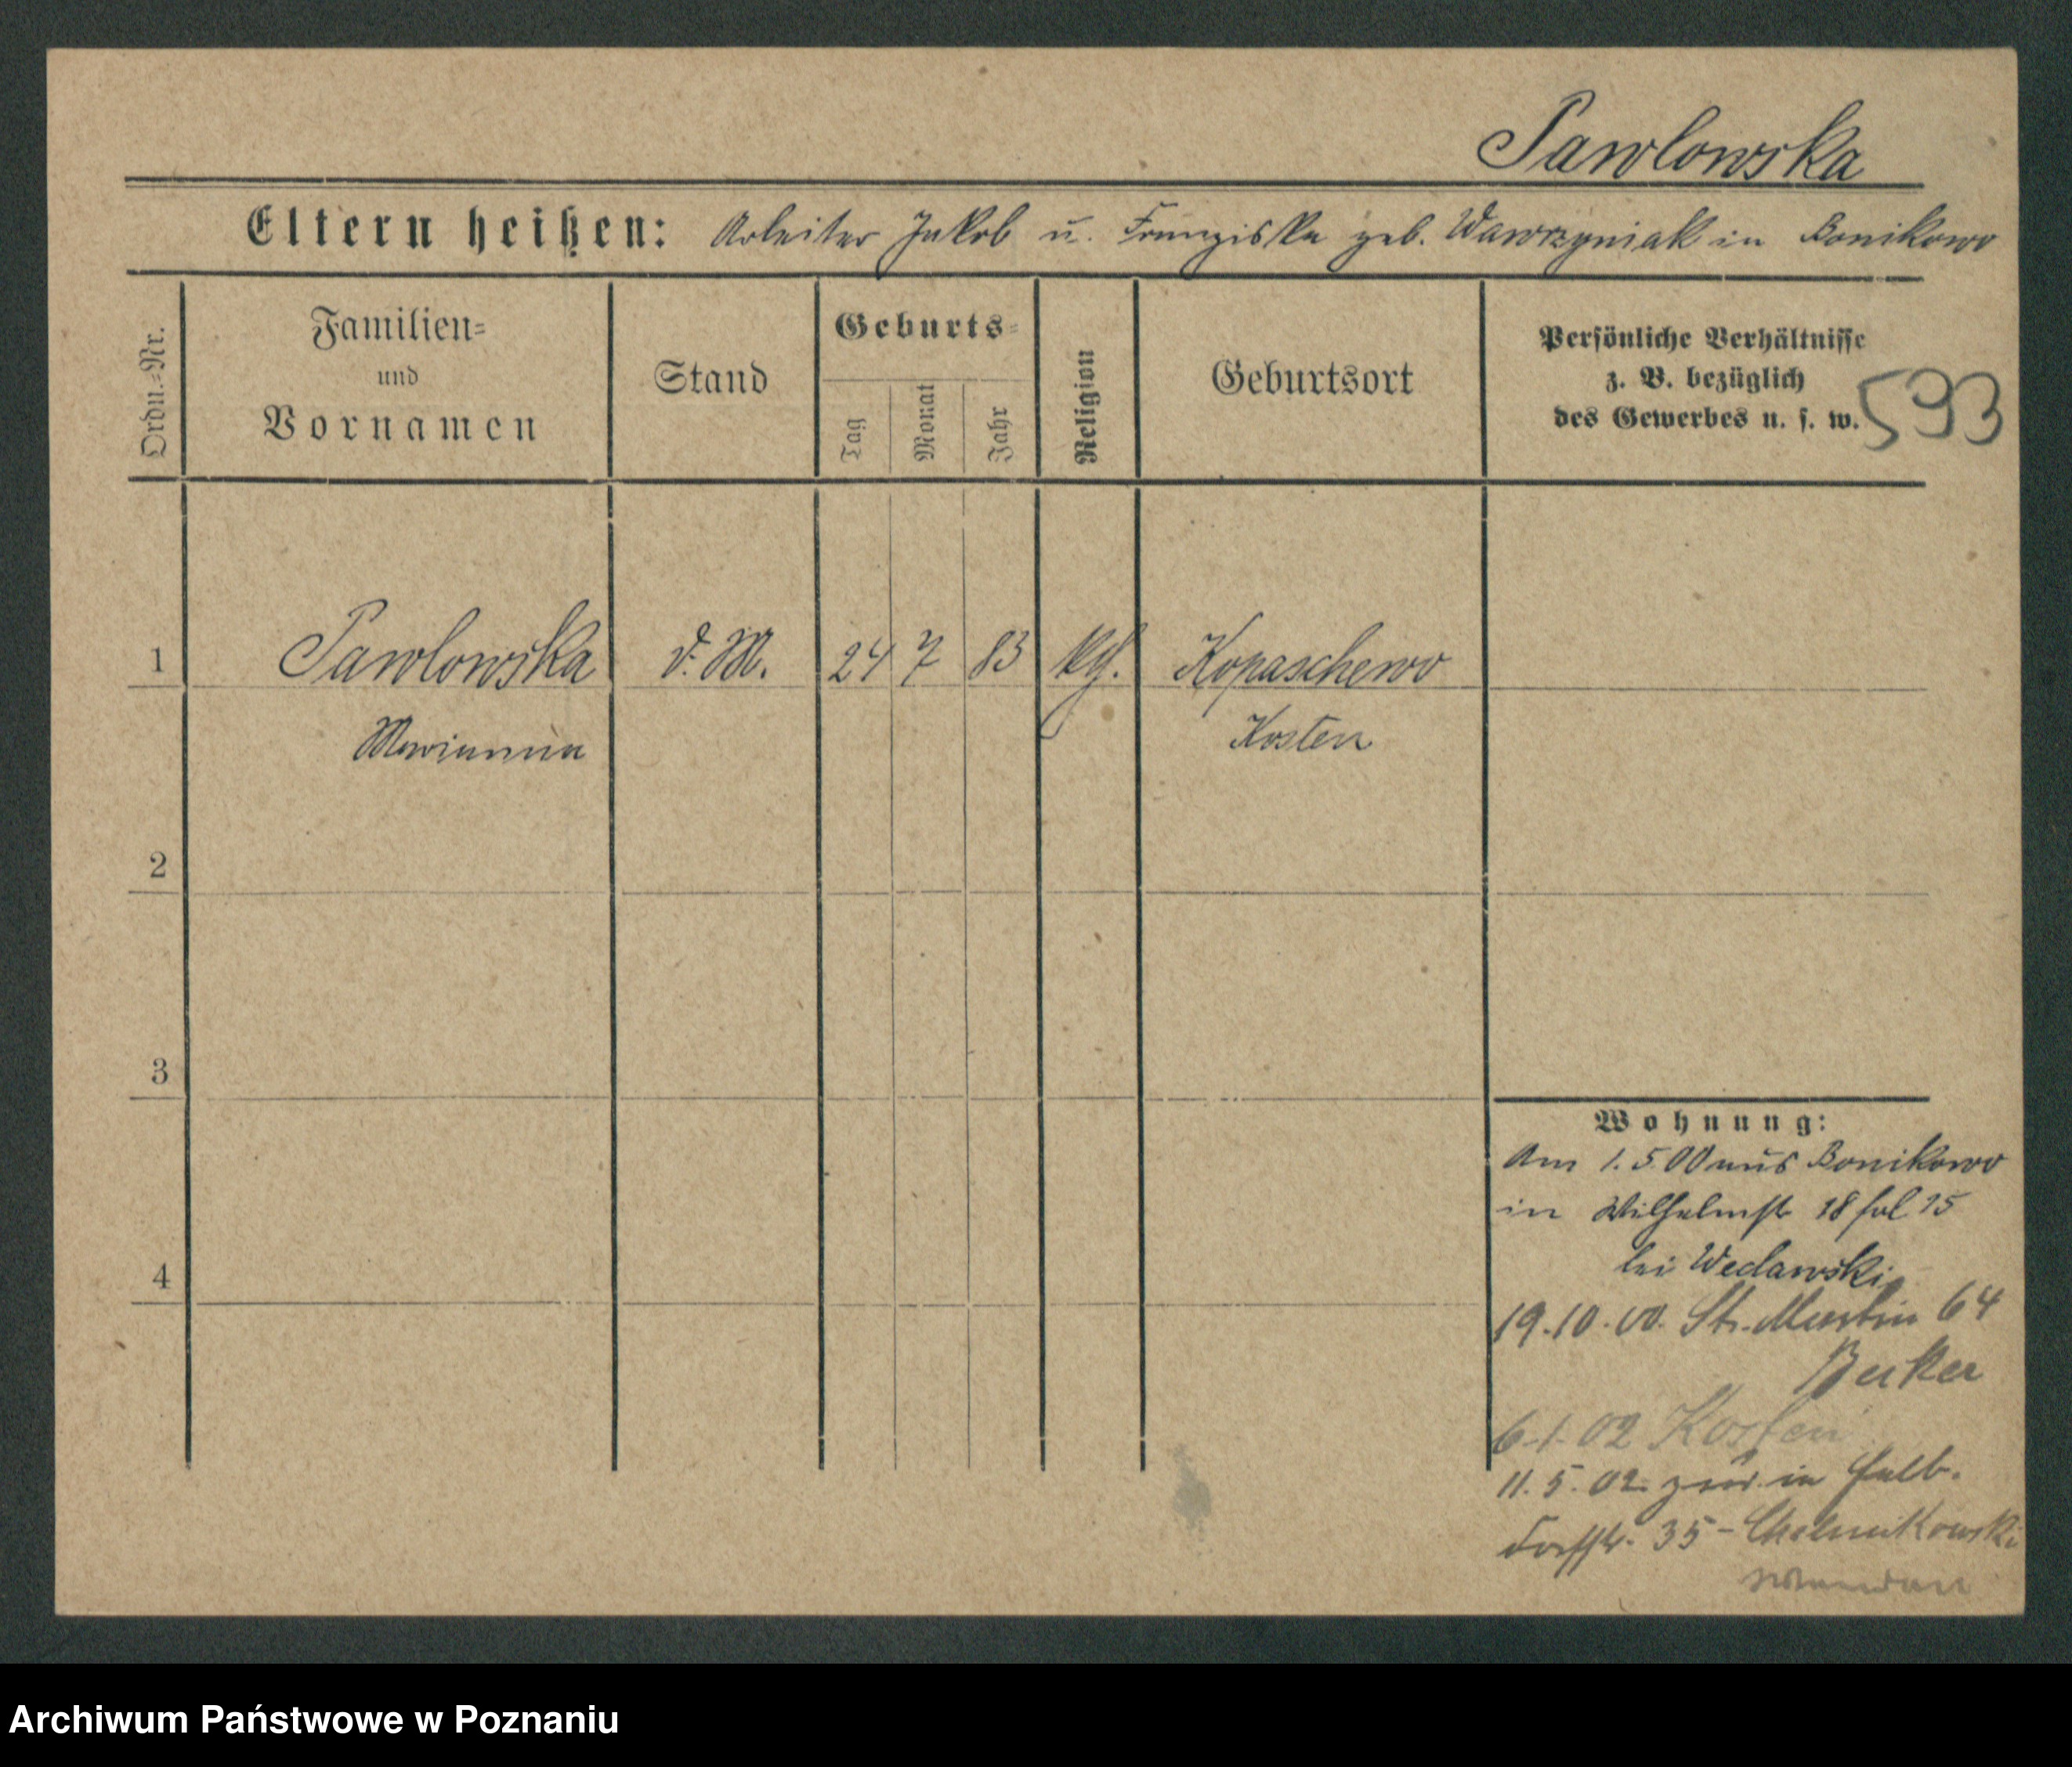 Pawlowska
Eltern heißen: Arbeiter Jakob u. Franziska geb. Wawrzyniak in Bonikowo
Ordn.=Nr.
Familien=
und
Vornamen
Stand
Geburts=
Tag
Monat
Jahr
Religion
Geburtsort
Persönliche Verhältnisse
z. B. bezüglich
des Gewerbes u. s. w.
593
1 Pawlowska d. M. 24 7 83 kg. Kopaschewo
Marianna Kosten
2
3
4
Wohnung:
Am 1.5.00 aus Bonikowo
in Wilhelmstr 18 fol 15
bei Weclawski
19.10.00. St. Martin 64
Becker
6.1.02 Kosten
11.5.02 zur. in Halb-
dorfstr. 35 - Chelmikowski
Archiwum Państwowe w Poznaniu